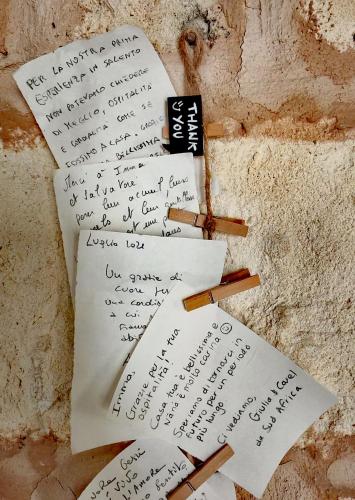 PER LA NOSTRA PRIMA
ESPERIENZA IN SALENTO
NON POTEVAMO CHIEDERE
DI MEGLIO, OSPITALITÀ
E COMODITÀ COME SE
FOSSIMO A CASA. GRAZIE
BELLISSIMA
THANK
YOU
Merci à Imma
et Salvatore
pour leur accueil, leurs
et leur
et une
dans
LUGLIO 2021
Un grazie di
cuore per
una
a cui
Imma,
Grazie per la tua
ospitalità!
Casa tua è bellissima e
Nana è molto carina ☺
Speriamo di tornarci in
futuro per un periodo
più lungo.
Ci vediamo,
Giulia y Carel
da Sud Africa
Gesù
l'Amore